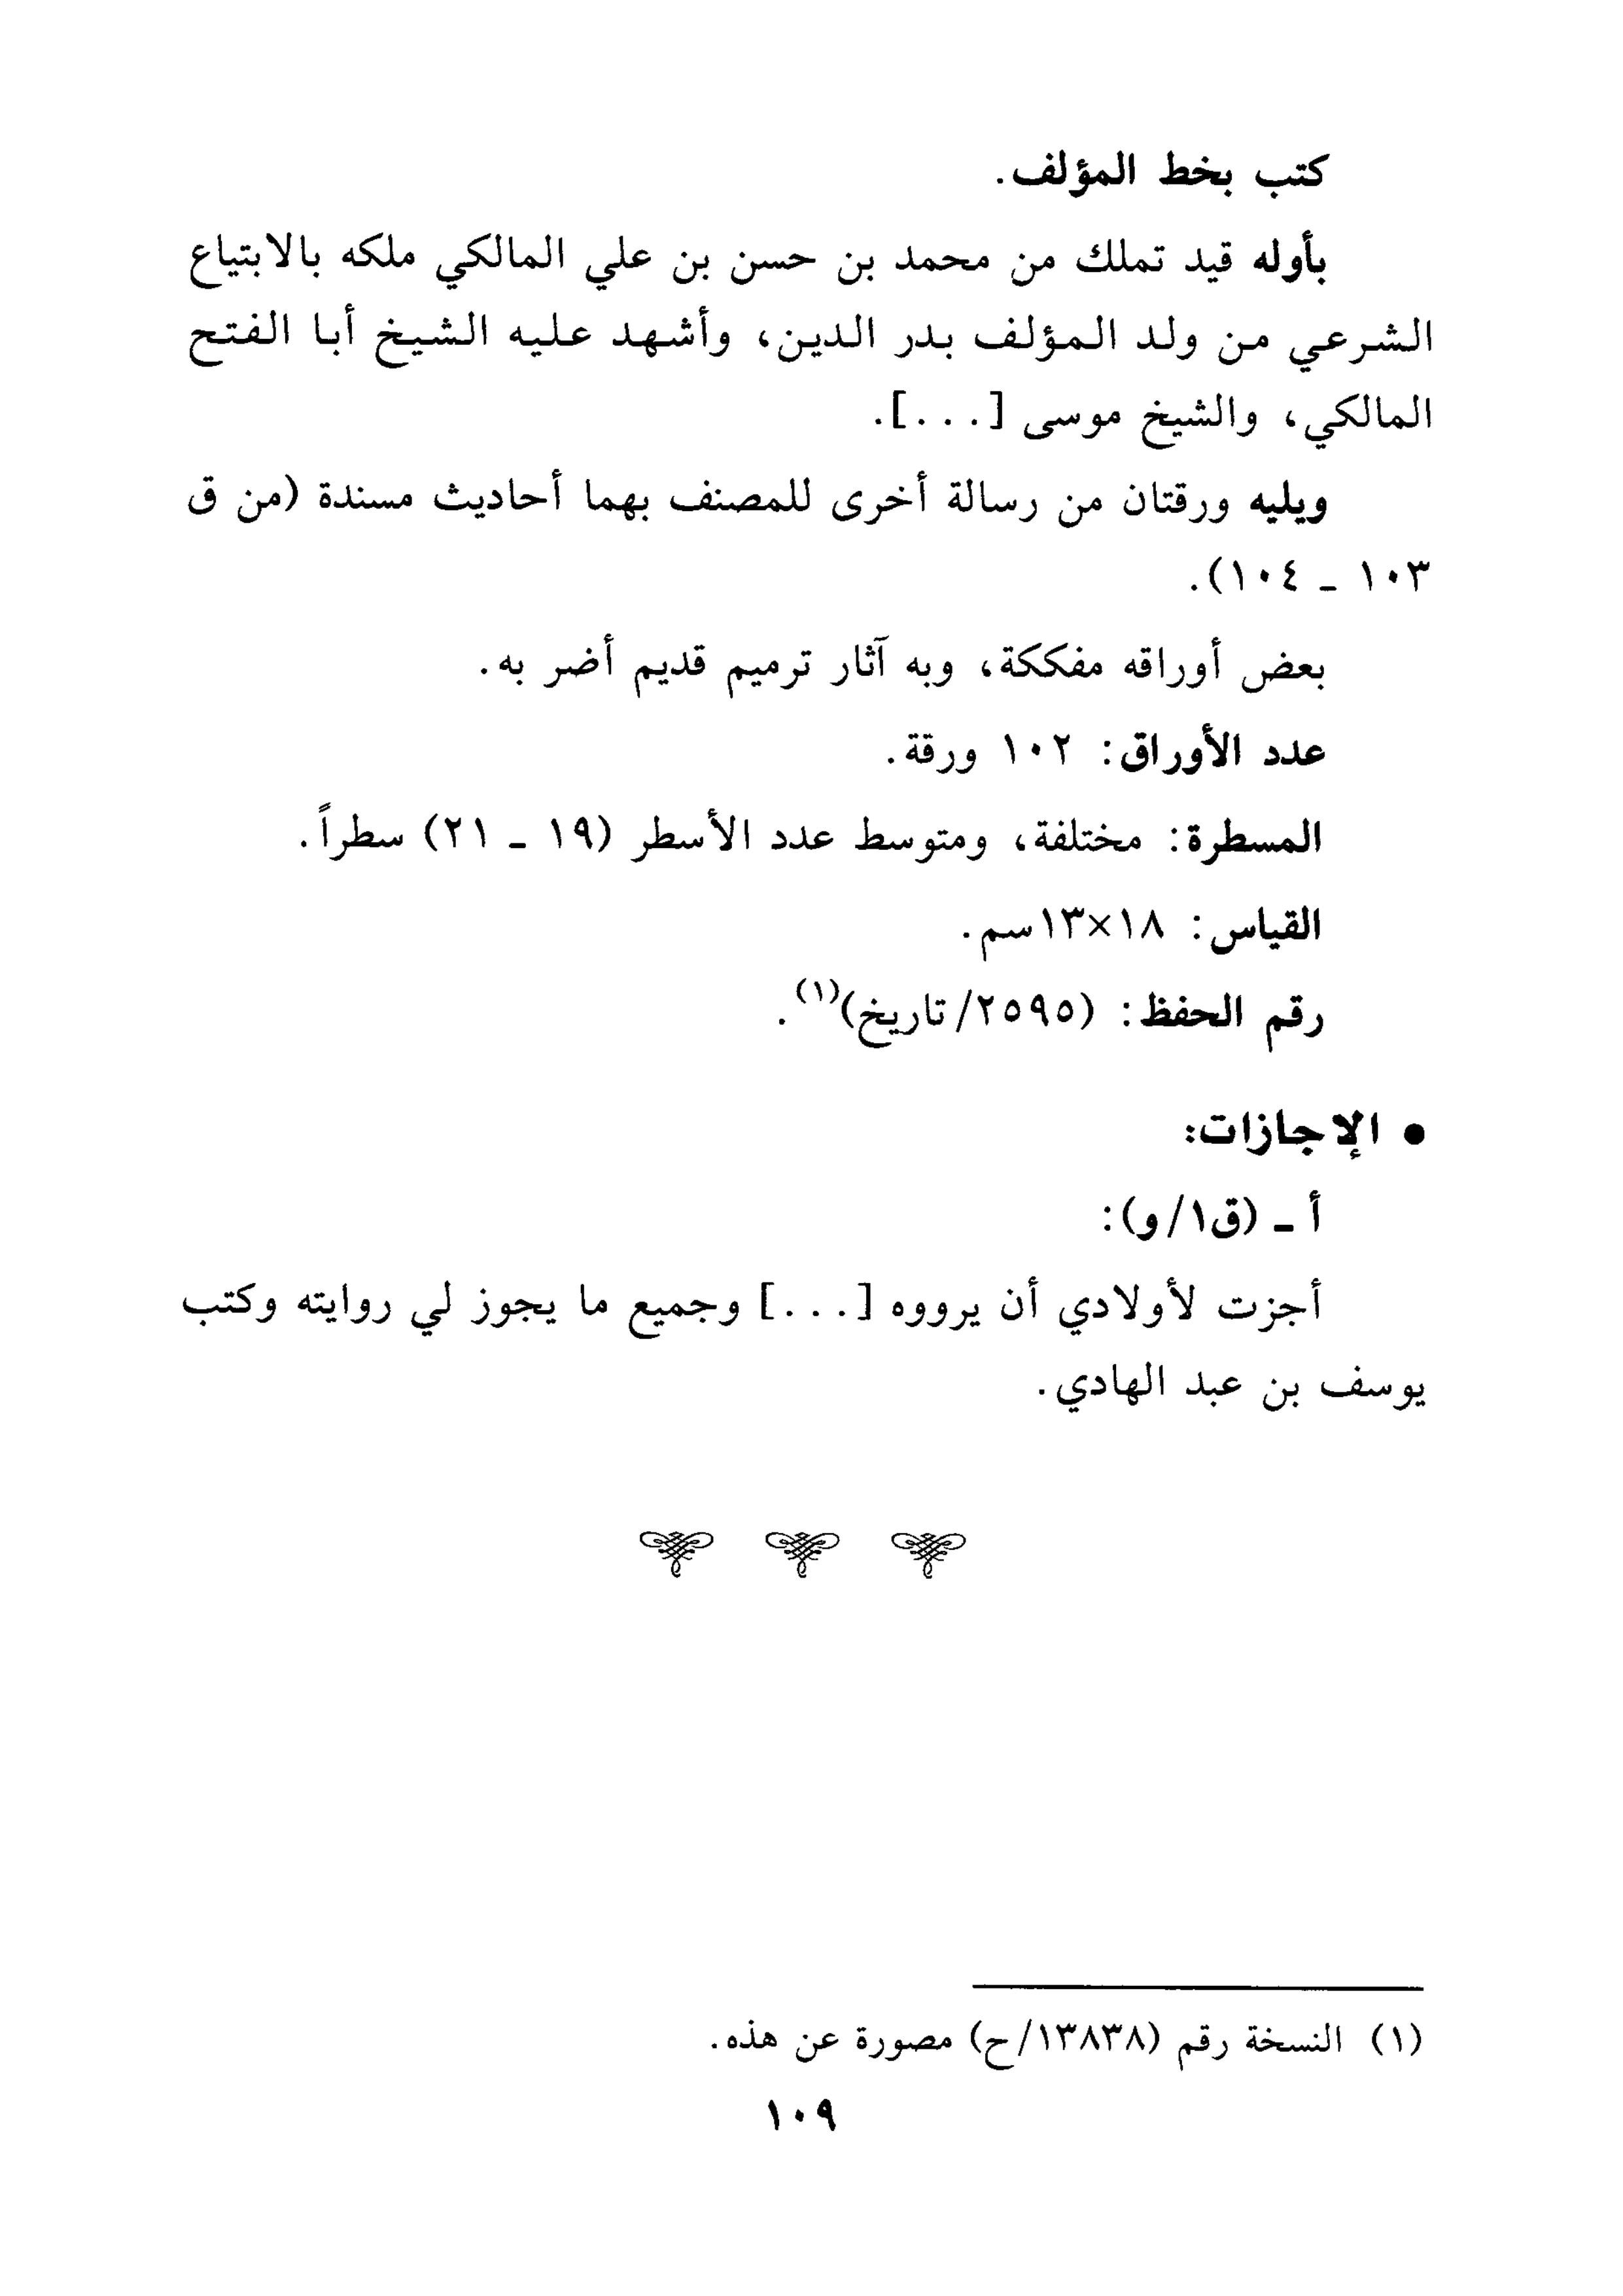 كتب بخط المؤلف.
بأوله قيد تملك من محمد بن حسن بن علي المالكي ملكه بالابتياع
الشرعي من ولد المؤلف بدر الدين، وأشهد عليه الشيخ أبا الفتح
المالكي، والشيخ موسى [...].
ويليه ورقتان من رسالة أخرى للمصنف بهما أحاديث مسندة (من ق
١٠٣ ـ ١٠٤).
بعض أوراقه مفككة، وبه آثار ترميم قديم أضر به.
عدد الأوراق: ١٠٢ ورقة.
المسطرة: مختلفة، ومتوسط عدد الأسطر (١٩ ـ ٢١) سطراً.
القياس: ١٨×١٣سم.
رقم الحفظ: (٢٥٩٥/تاريخ)(١).
• الإجازات:
أ ـ (ق١/و):
أجزت لأولادي أن يرووه [...] وجميع ما يجوز لي روايته وكتب
يوسف بن عبد الهادي.
(١) النسخة رقم (١٣٨٣٨/ح) مصورة عن هذه.
١٠٩